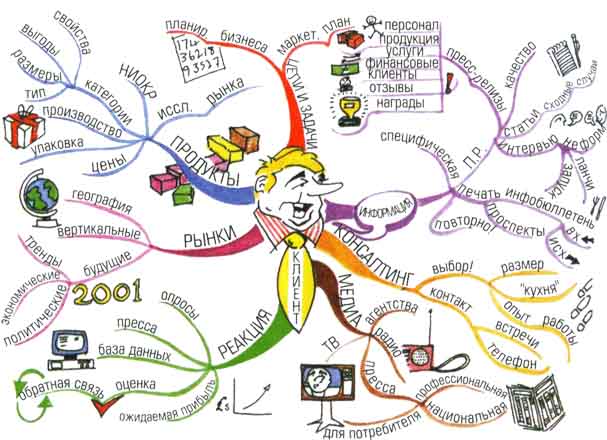 свойства
выгоды
размеры
тип
категории
НИОКР
производство
упаковка
цены
иссл.
рынка
ПРОДУКТЫ
планир.
бизнеса
174
36218
93527
маркет.
план
ЦЕЛИ И ЗАДАЧИ
персонал
продукция
услуги
финансовые
клиенты
отзывы
награды
!
пресс-релизы
качество
статьи
сходные случаи
интервью
неформ.
ланчи
запуск
П.Р.
специфическая
ИНФОРМАЦИЯ
печать
инфобюллетень
проспекты
повторно!
вх
исх
география
вертикальные
будущие
тренды
экономические
политические
РЫНКИ
2001
КЛИЕНТ
КОНСАЛТИНГ
выбор!
размер
"кухня"
контакт
опыт
работы
встречи
телефон
МЕДИА
агентства
радио
ТВ
пресса
профессиональная
национальная
для потребителя
РЕАКЦИЯ
опросы
пресса
база данных
оценка
обратная связь
ожидаемая прибыль
£s